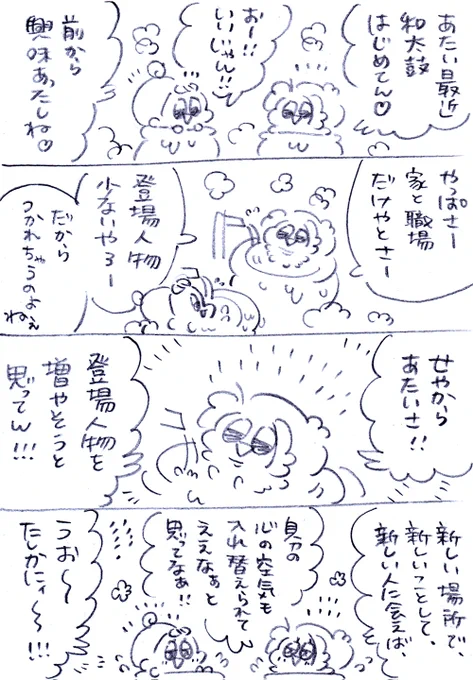 あたい最近
和太鼓
はじめてん♡
おー!!
いいじゃん!!
前から
興味あったしね♡
やっぱさー
家と職場
だけやとさー
登場人物
少ないやろー
だから
つかれちゃうのよねぇ
ね
せやから
あたいさ!!
登場人物を
増やそうと
思ってん!!!
新しい場所で、
新しいことして、
新しい人に会えば、
自分の
心の空気も
入れ替えられて
ええなぁと
思ってなぁ!!
うお〜
たしかにィ〜〜!!!